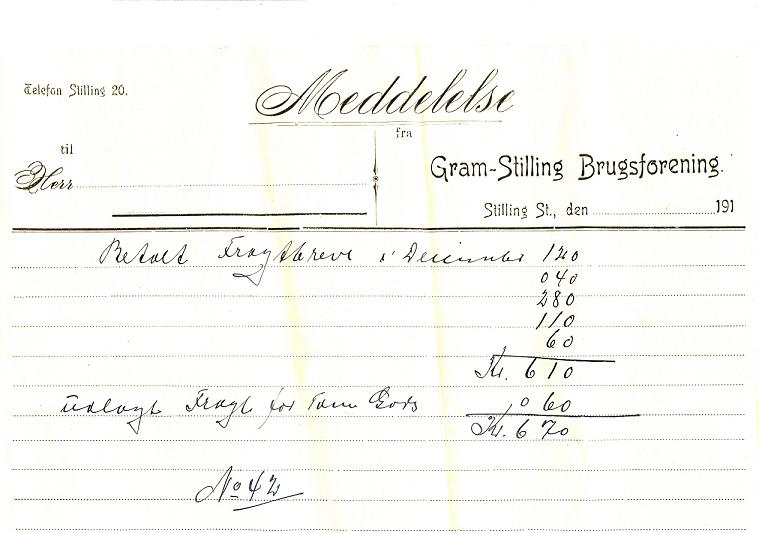 Telefon Stilling 20.
Meddelelse
fra
til
Herr
Gram-Stilling Brugsforening.
Stilling St., den 191
Betalt Fragtbreve i December 120
040
280
110
60
Kr. 610
Udlagt Fragt for Tom Gods 060
Kr. 670
No 42